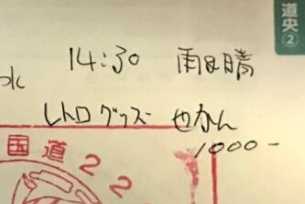 道央②
14:30 雨のち晴
レトログッズ やかん
1000-
国道22